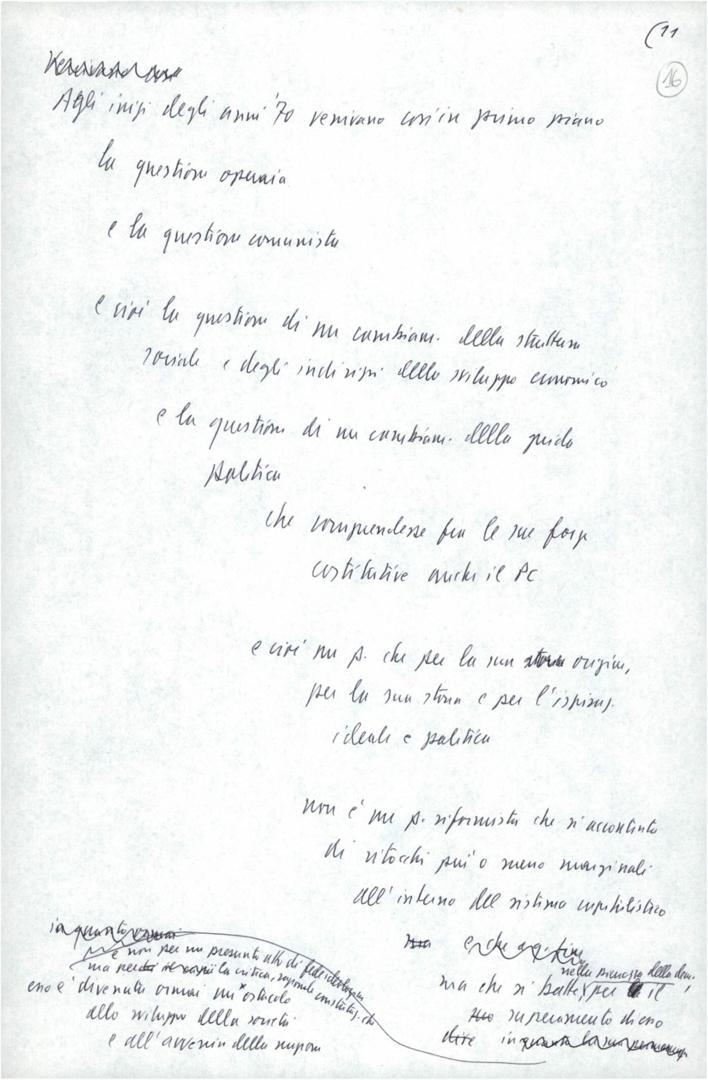 (11
16
Agli inizi degli anni '70 venivano così in primo piano
la questione operaia
e la questione comunista
e cioè la questione di un cambiam. della struttura
sociale e degli indirizzi dello sviluppo economico
e la questione di un cambiam. della guida
politica
che comprendesse fra le sue forze
costitutive anche il PC
e cioè un p. che per la sua storia origine,
per la sua storia e per l'ispiraz.
ideale e politica
non è un p. riformista che si accontenta
di ritocchi più o meno marginali
all'interno del sistema capitalistico
ma e che agisce
nella pienezza della dem.,
ma che si batte, per il
suo superamento di esso
in quanto
in quanto
e non per un presunto atto di fede ideologica
ma per la critica, razionale constataz. che
esso è divenuto ormai un ostacolo
allo sviluppo della società
e all'avvenire della